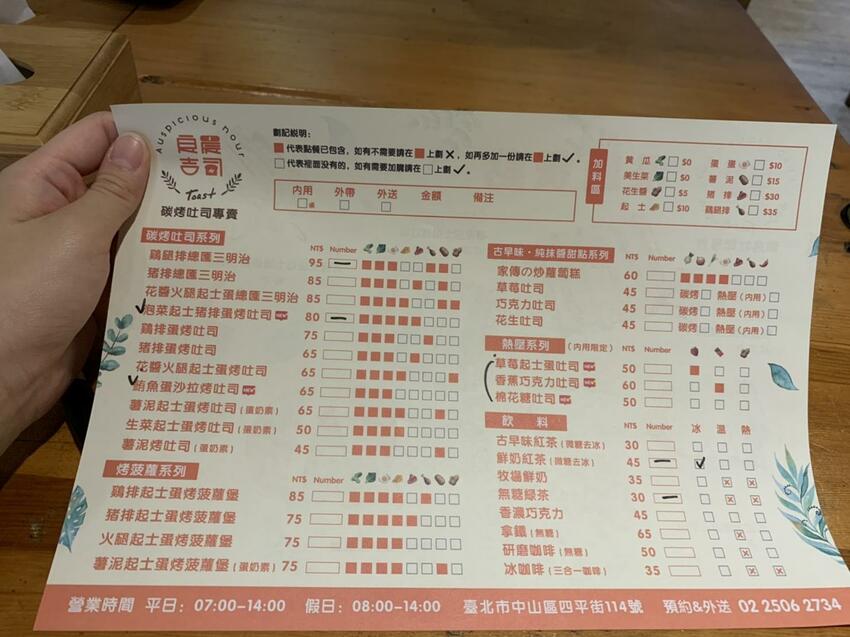 Auspicious hour
良農吉司
Toast
碳烤吐司專賣
劃記説明:
代表點餐已包含,如有不需要請在 上劃 ✗,如再多加一份請在 上劃 ✓。
代表裡面没有的,如有需要加購請在 上劃 ✓。
內用 外帶 外送 金額 備注
加料區
黄瓜 $0 蛋 $10
美生菜 $0 薯泥 $15
花生醬 $5 豬排 $30
起士 $10 鷄腿排 $35
碳烤吐司系列 NT$ Number
鷄腿排總匯三明治 95
豬排總匯三明治 85
花醬火腿起士蛋總匯三明治 85
泡菜起士豬排蛋烤吐司 80
鷄排蛋烤吐司 75
豬排蛋烤吐司 65
花醬火腿起士蛋烤吐司 65
鮪魚蛋沙拉烤吐司 65
薯泥起士蛋烤吐司(蛋奶素) 65
生菜起士蛋烤吐司(蛋奶素) 50
薯泥烤吐司(蛋奶素) 45
烤菠蘿系列 NT$ Number
鷄排起士蛋烤菠蘿堡 85
豬排起士蛋烤菠蘿堡 75
火腿起士蛋烤菠蘿堡 75
薯泥起士蛋烤菠蘿堡(蛋奶素) 75
古早味·純抹醬甜點系列 NT$ Number
家傳の炒蘿蔔糕 60
草莓吐司 45 碳烤 熱壓(内用)
巧克力吐司 45 碳烤 熱壓(内用)
花生吐司 45 碳烤 熱壓(内用)
熱壓系列(内用限定) NT$ Number
草莓起士蛋吐司 50
香蕉巧克力吐司 60
棉花糖吐司 50
飲料 NT$ Number 冰 温 熱
古早味紅茶(微糖去冰) 30
鮮奶紅茶(微糖去冰) 45
牧場鮮奶 35
無糖緑茶 30
香濃巧克力 45
拿鐵(無糖) 65
研磨咖啡(無糖) 50
冰咖啡(三合一咖啡) 35
營業時間 平日:07:00-14:00 假日:08:00-14:00 臺北市中山區四平街114號 預約&外送 02 2506 2734